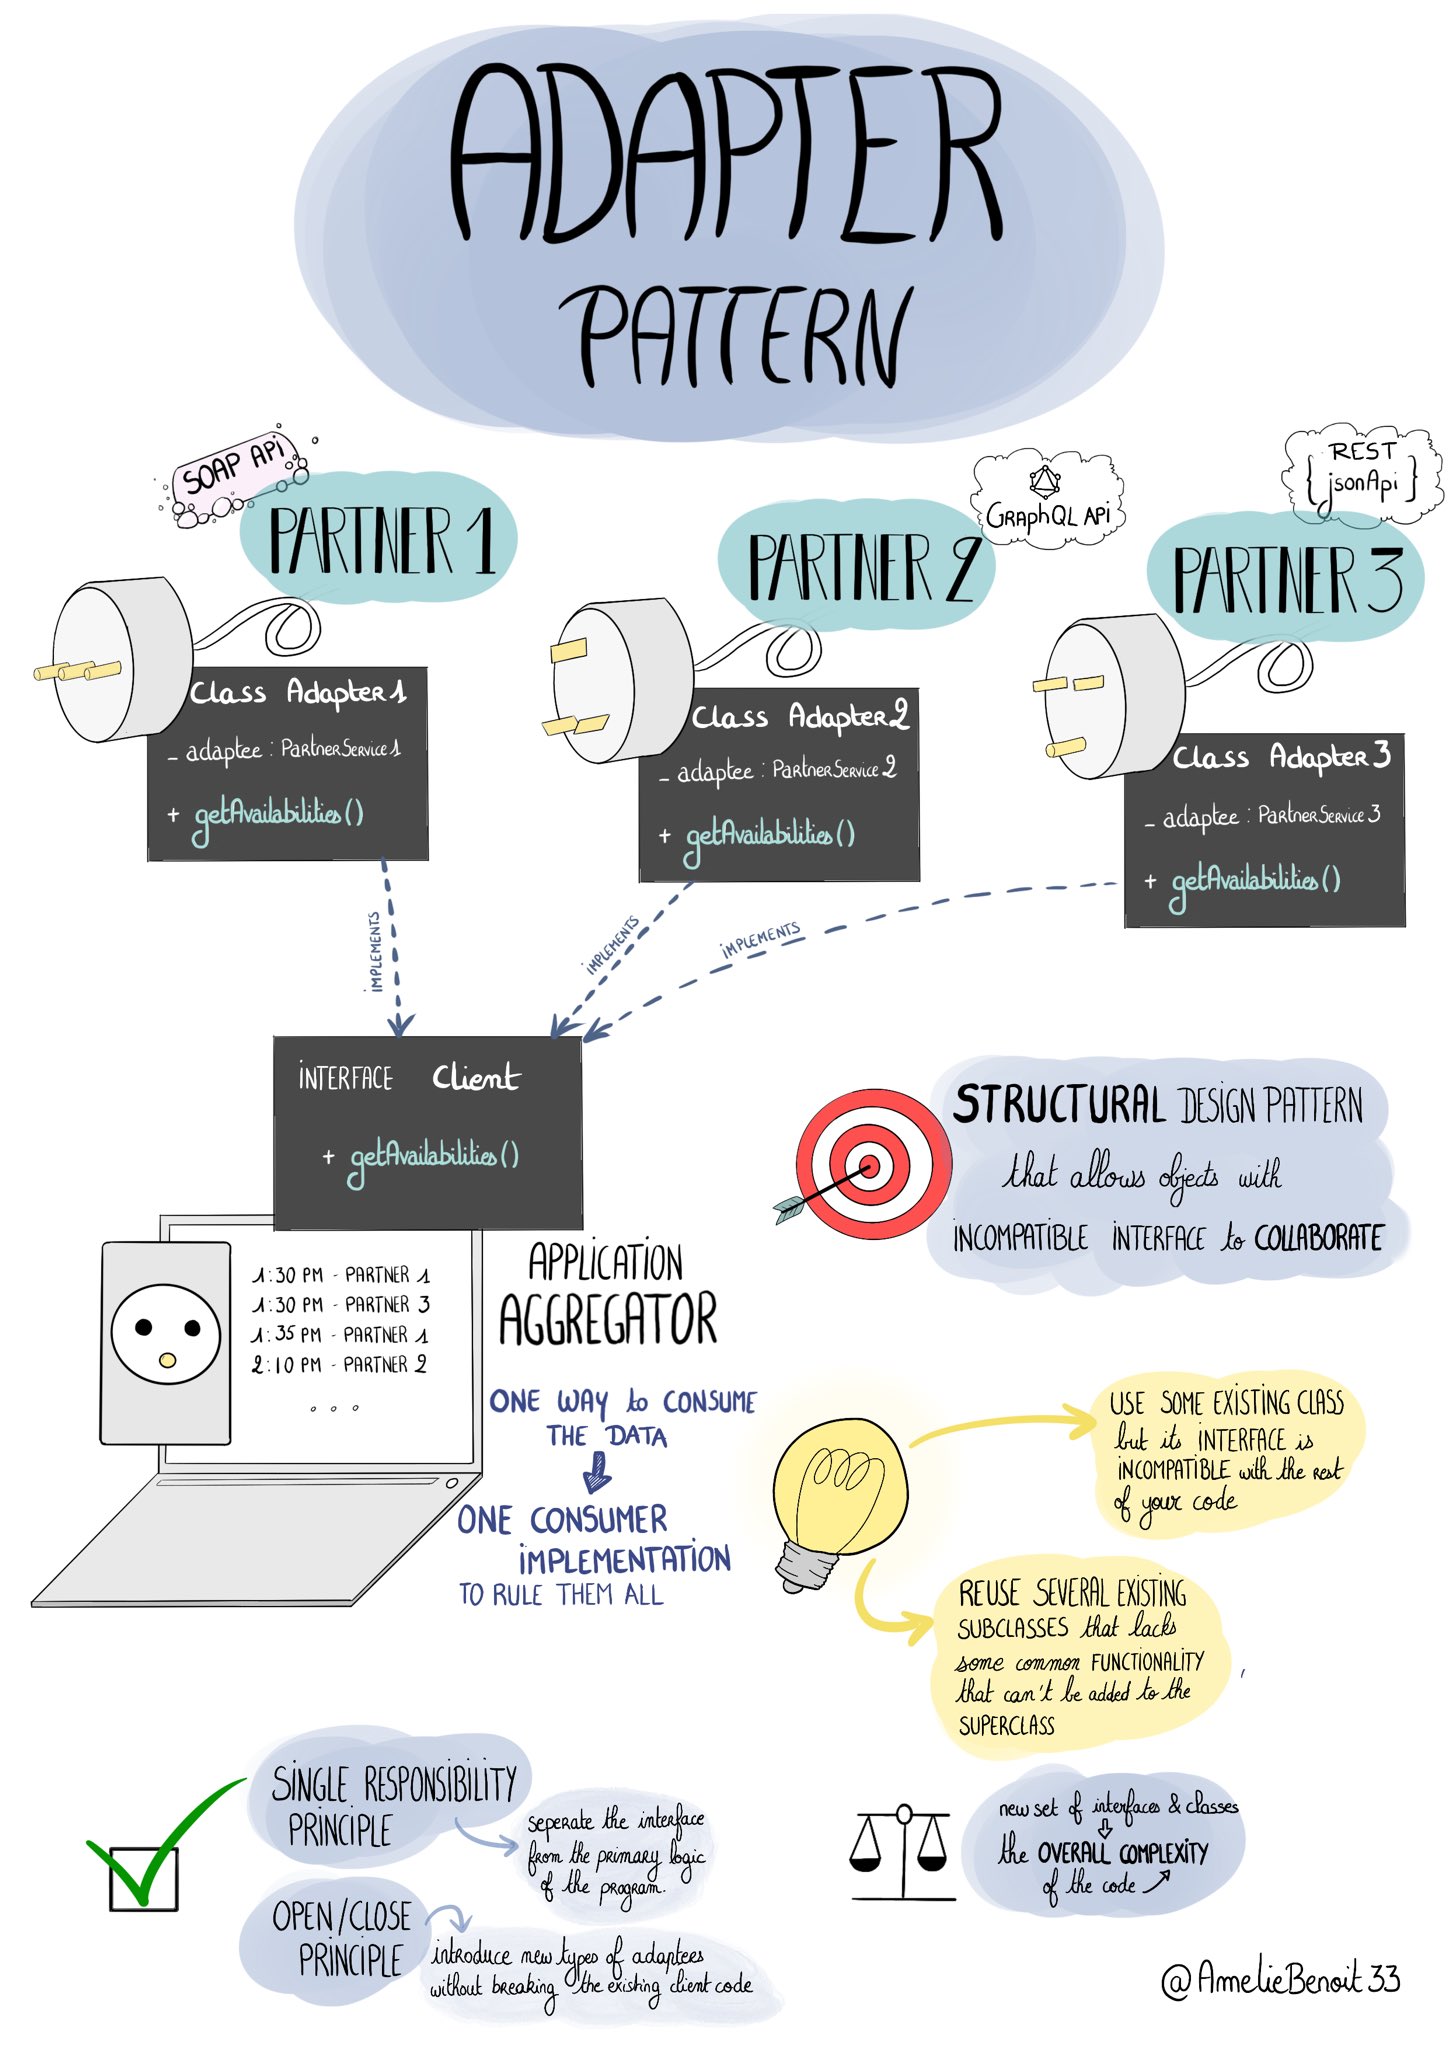 ADAPTER
PATTERN
SOAP Api
PARTNER 1
GRAPHQL APi
PARTNER 2
REST
{ jsonApi }
PARTNER 3
Class Adapter1
- adaptee : PartnerService1
+ getAvailabilities()
Class Adapter2
- adaptee : PartnerService2
+ getAvailabilities()
Class Adapter3
- adaptee : PartnerService3
+ getAvailabilities()
iMPLEMENTS
iMPLEMENTS
iMPLEMENTS
iNTERFACE Client
+ getAvailabilities()
1:30 PM - PARTNER 1
1:30 PM - PARTNER 3
1:35 PM - PARTNER 1
2:10 PM - PARTNER 2
...
APPLICATION
AGGREGATOR
ONE WAY to CONSUME
THE DATA
ONE CONSUMER
iMPLEMENTATION
TO RULE THEM ALL
STRUCTURAL DESIGN PATTERN
that allows objects with
INCOMPATIBLE INTERFACE to COLLABORATE
USE SOME EXISTING CLASS
but its INTERFACE is
INCOMPATIBLE with the rest
of your code
REUSE SEVERAL EXISTING
SUBCLASSES that lacks
some common FUNCTIONALITY
that can't be added to the
SUPERCLASS
SINGLE RESPONSIBILITY
PRINCIPLE
seperate the interface
from the primary logic
of the program.
OPEN/CLOSE
PRINCIPLE
introduce new types of adaptees
without breaking the existing client code
new set of interfaces & classes
the OVERALL COMPLEXITY
of the code
@AmelieBenoit33